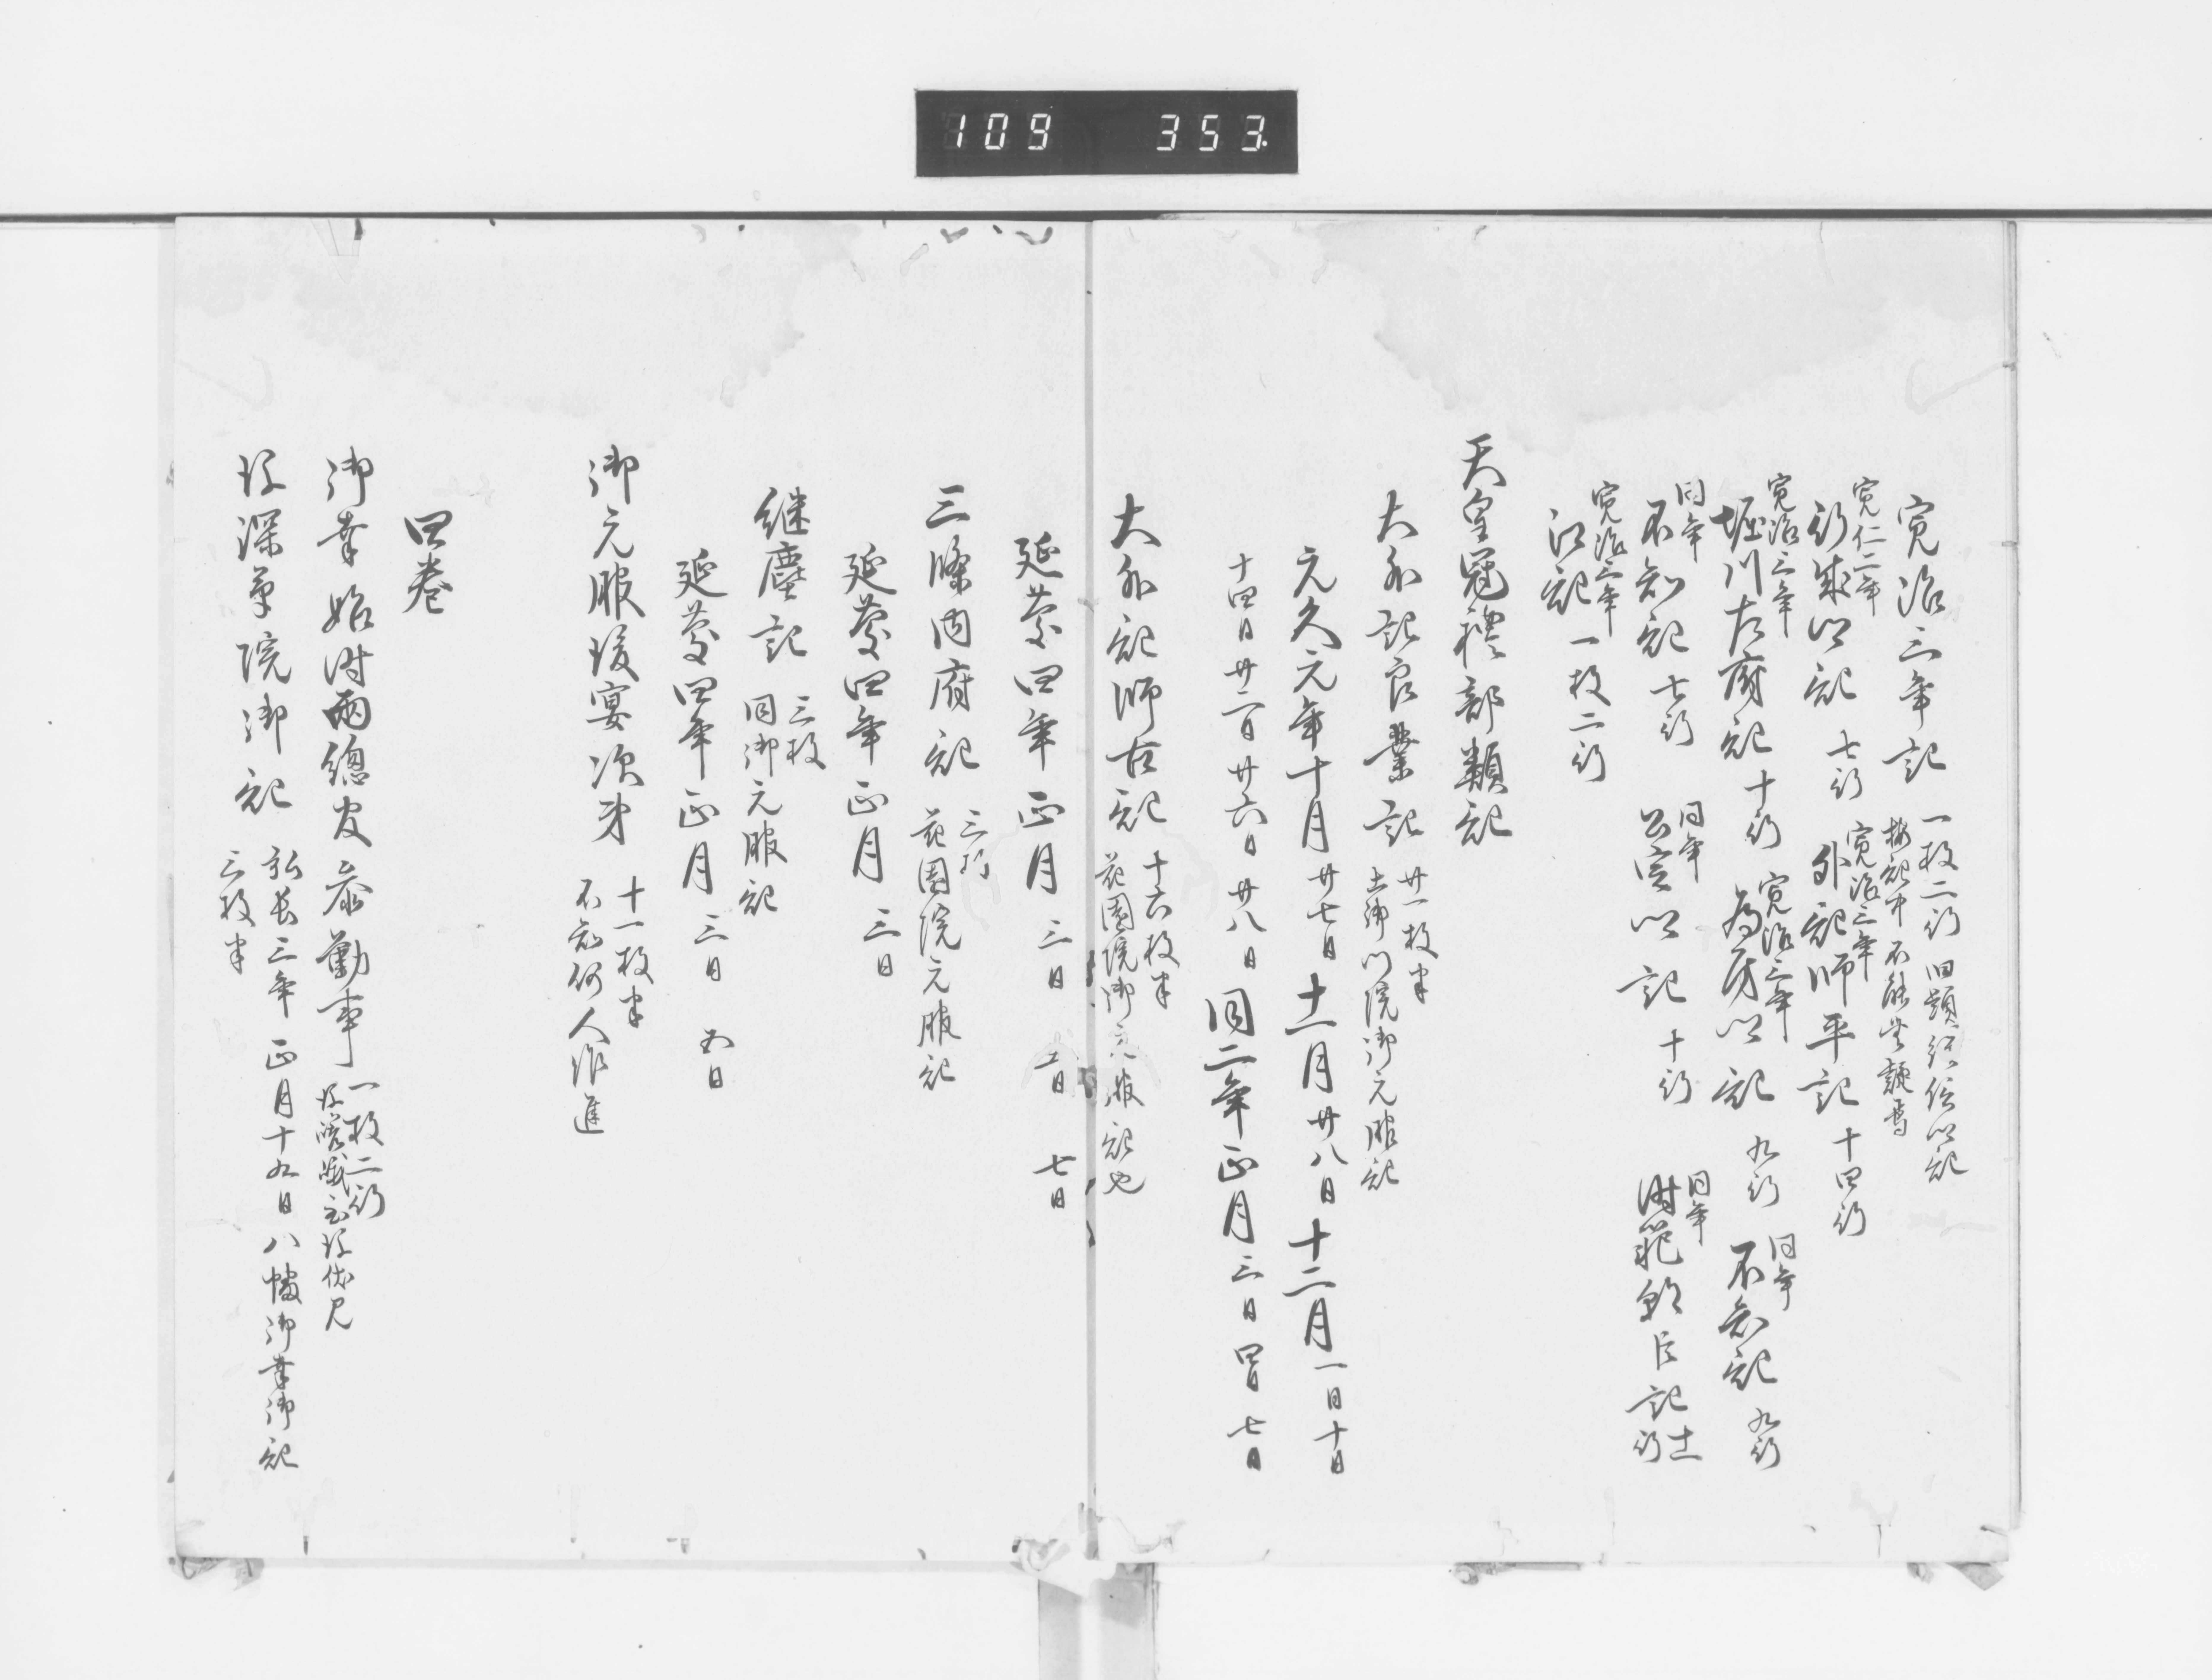 109 353
寛治三年記 一枚二行 旧題経信公記
按記中不能無疑焉
寛仁二年 行成公記 七行 寛治三年 外記師平記 十四行
寛治三年 堀川左府記 十行 寛治三年 為房公記 九行 同年 不知記 九行
同年 不知記 七行 同年 公実公記 十行 同年 時範朝臣記 十一行
寛治三年 江記 一枚二行
天皇冠禮部類記
大外記良業記 廿一枚半
土御門院御元服記
元久元年十月廿七日 十一月廿八日 十二月一日 十日
十四日 廿二日 廿六日 廿八日 同二年正月三日 四日 七日
大外記師古記 十六枚半
花園院御元服記也
延慶四年正月三日 五日 七日
三條内府記 三行
花園院元服記
延慶四年正月三日
継塵記 三枚
同御元服記
延慶四年正月三日 五日
御元服後宴次第 十一枚半
不知何人作進
四巻
御幸始時両総官参勤事 一枚二行
後嵯峨至後伏見
後深草院御記 弘長三年正月十九日八幡御幸御記
三枚半